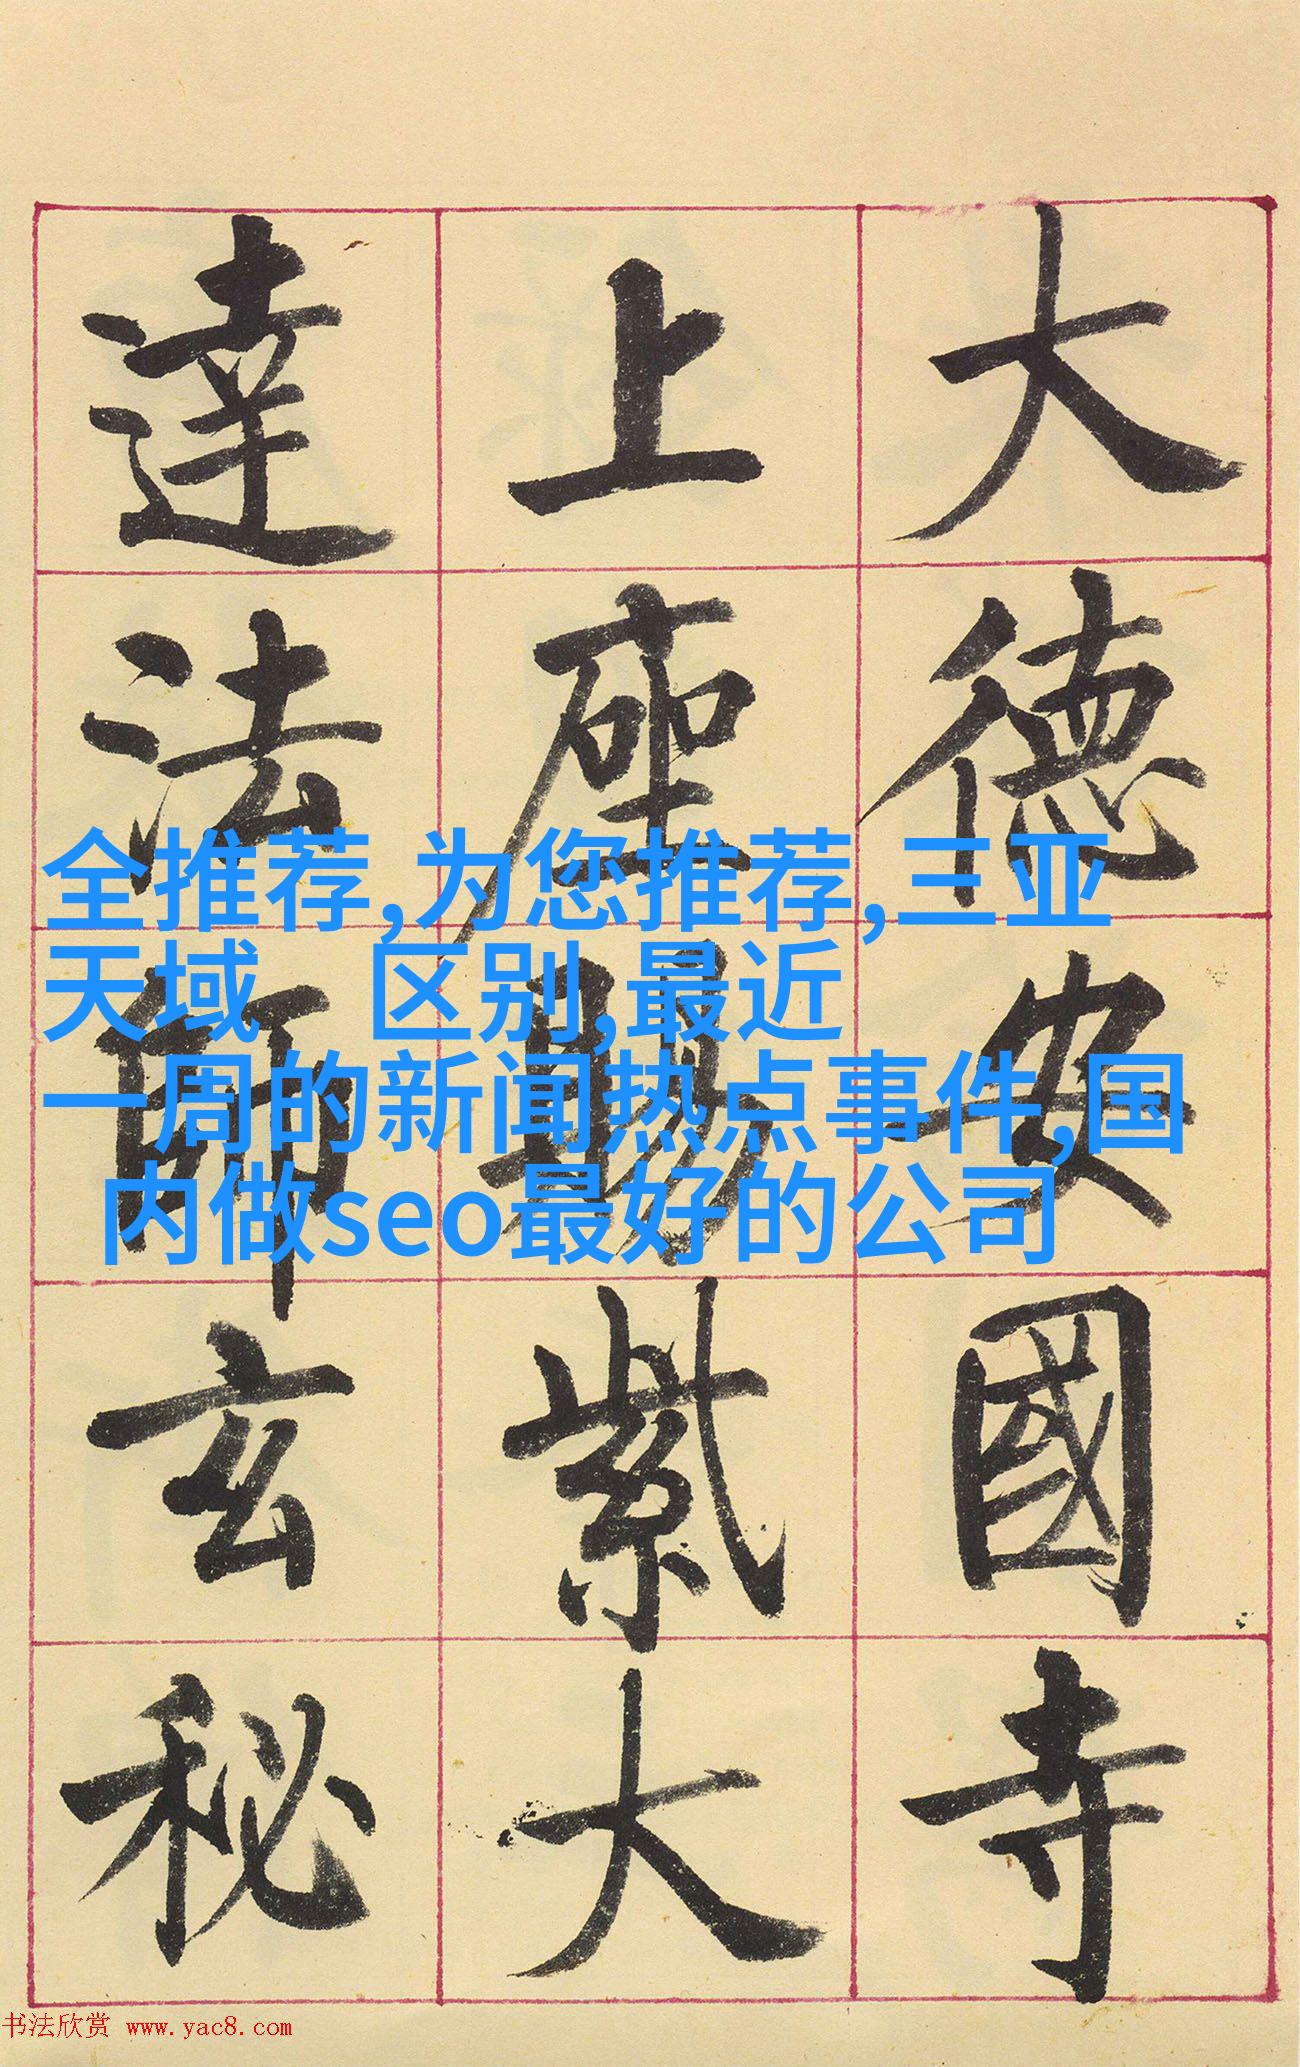 大德安國寺
上座賜紫大
達法師玄秘
全推荐,为您推荐,三亚
天域 区别,最近
一周的新闻热点事件,国
内做seo最好的公司
书法欣赏 www.yac8.com